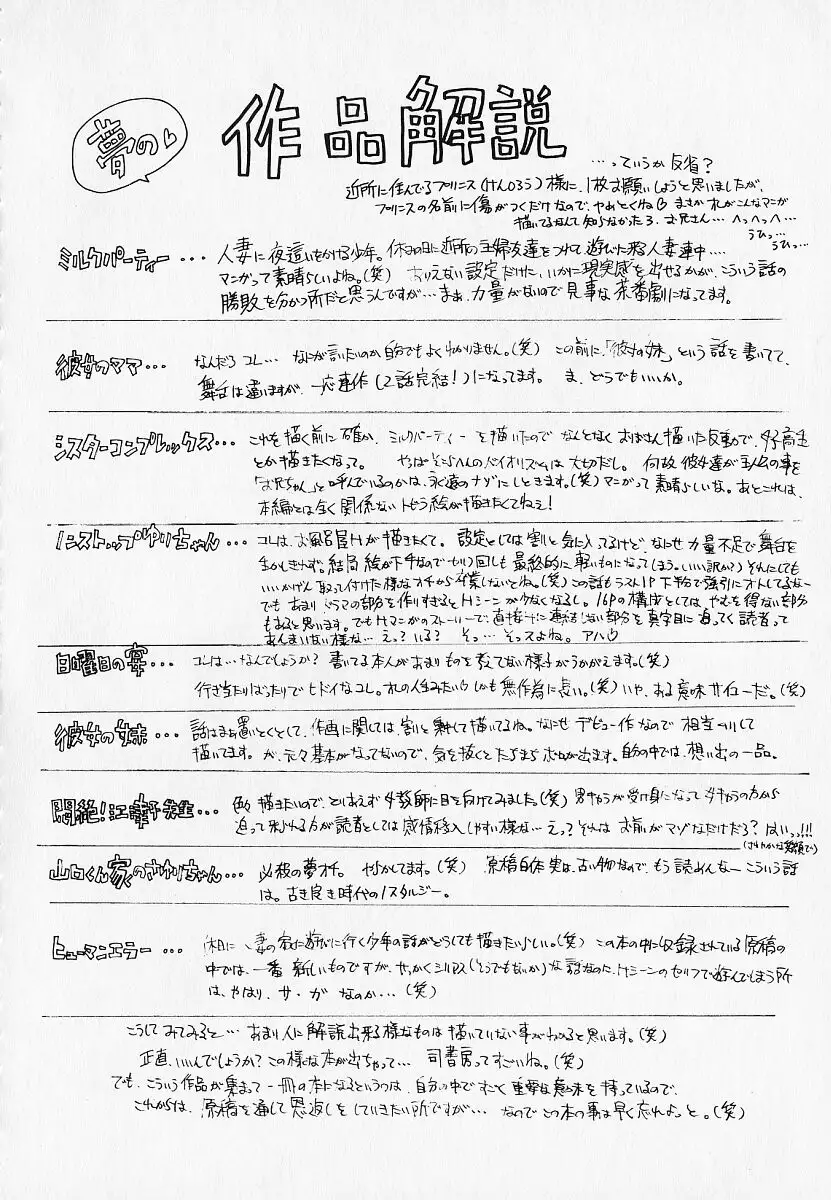 夢の
作品解説
…っていうか反省？
近所に住んでるプリンス(けんしろう)様に、1枚お願いしようと思いましたが、
プリンスの名前に傷がつくだけなので、やめとくね まさかオレがこんなマンガ
描いてるなんて知らなかったろ、お兄さん… へっへっへ…
うひっ… うひっ…
ミルクパーティー… 人妻に夜這いをかける少年。休みの日に近所の主婦友達をつれて遊びに来る人妻連中…。
マンガって素晴らしいよね。(笑) ありえない設定だけに、いかに現実感を出せるかが、こういう話の
勝敗を分かつ所だと思うんですが…まぁ、力量がないので見事な茶番劇になってます。
彼女のママ… なんだろコレ… なにが言いたいのか自分でもよくわかりません。(笑) この前に、「彼女の妹」という話を書いてて、
舞台は違いますが、一応連作(2話完結！)になってます。 ま、どうでもいいか。
シスターコンプレックス… これを描く前に確か、ミルクパーティーを描いたので なんとなくおばさん描いた反動で、女子高生
とか描きたくなって。 やっぱそこらへんのバイオリズムは大切だし。 何故彼女達が主人公の事を
「お兄ちゃん」と呼んでいるのかは、永遠のナゾにしときます。(笑) マンガって素晴らしいな。あとこれは、
本編とは全く関係ないトビラ絵が描きたくてねぇ！
ノンストップゆりちゃん… コレは、お風呂屋Hが描きたくて。 設定としては割と気に入ってるけど、なにせ力量不足で舞台を
生かしきれず。結局絵が下手なのでセリフ回しも最終的に軽いものになってしまう。(いい訳か？) それにしても
いいかげん取って付けた様なオチから卒業しないとね。(笑) この話もラスト1P下半分で強引にオトしてるなー
でもあまりドラマの部分を作りすぎるとHシーンが少なくなるし。16Pの構成としては、やむを得ない部分
もあると思います。でもHマンガのストーリーで、直接Hに連結しない部分を真面目に追ってく読者って
あんまいない様な… えっ？いる？ そっ…そっスよね。アハ
日曜日の宴… コレは…なんでしょうか？ 書いてる本人があまりものを考えてない様子がうかがえます。(笑)
行き当たりばったりでヒドイなコレ。オレの人生みたい しかも無作為に長い。(笑) いや、ある意味サイコーだ。(笑)
彼女の妹… 話はまぁ置いとくとして、作画に関しては割と頑張って描いてるね。なにせデビュー作なので 相当
描いてます。が、元々基本がなってないので、気を抜くとたちまちボロが出ます。自分の中では、想い出の一品。
悶絶！江幸子先生… 色々描きたいので、とりあえず女教師に目を向けてみました。(笑) 男キャラが受け身になって女キャラの方から
迫って来られる方が読者としては感情移入しやすい様な… えっ？それはお前がマゾなだけだろ？ はいっ!!!
(さわやかな笑顔で)
山口くん家のさゆりちゃん… 必殺の夢オチ。 やらかしてます。(笑) 原稿自体実は、古い物なので、もう読めんなーこういう話
は。古き良き時代のノスタルジー。
ヒューマンエラー… 妻の家に遊びに行く少年の話がどうしても描きたいらしい。(笑) この本の中に収録されている原稿の
中では、一番新しいものですが、せっかくシリアス(そうでもないか)な話なのに、Hシーンのセリフで遊んでしまう所
は、やはり、サ・ガなのか…(笑)
こうしてみてみると… あまり人に解説出来る様なものは描いていない事がわかると思います。(笑)
正直、いいんでしょうか？この様な本が出ちゃって… 司書房ってすごいね。(笑)
でも、こういう作品が集まって一冊の本になるというのは、自分の中ですごく重要な意味を持っているので、
これからは、原稿を通して恩返しをしていきたい所ですが… なのでこの本の事は早く忘れよっと。(笑)